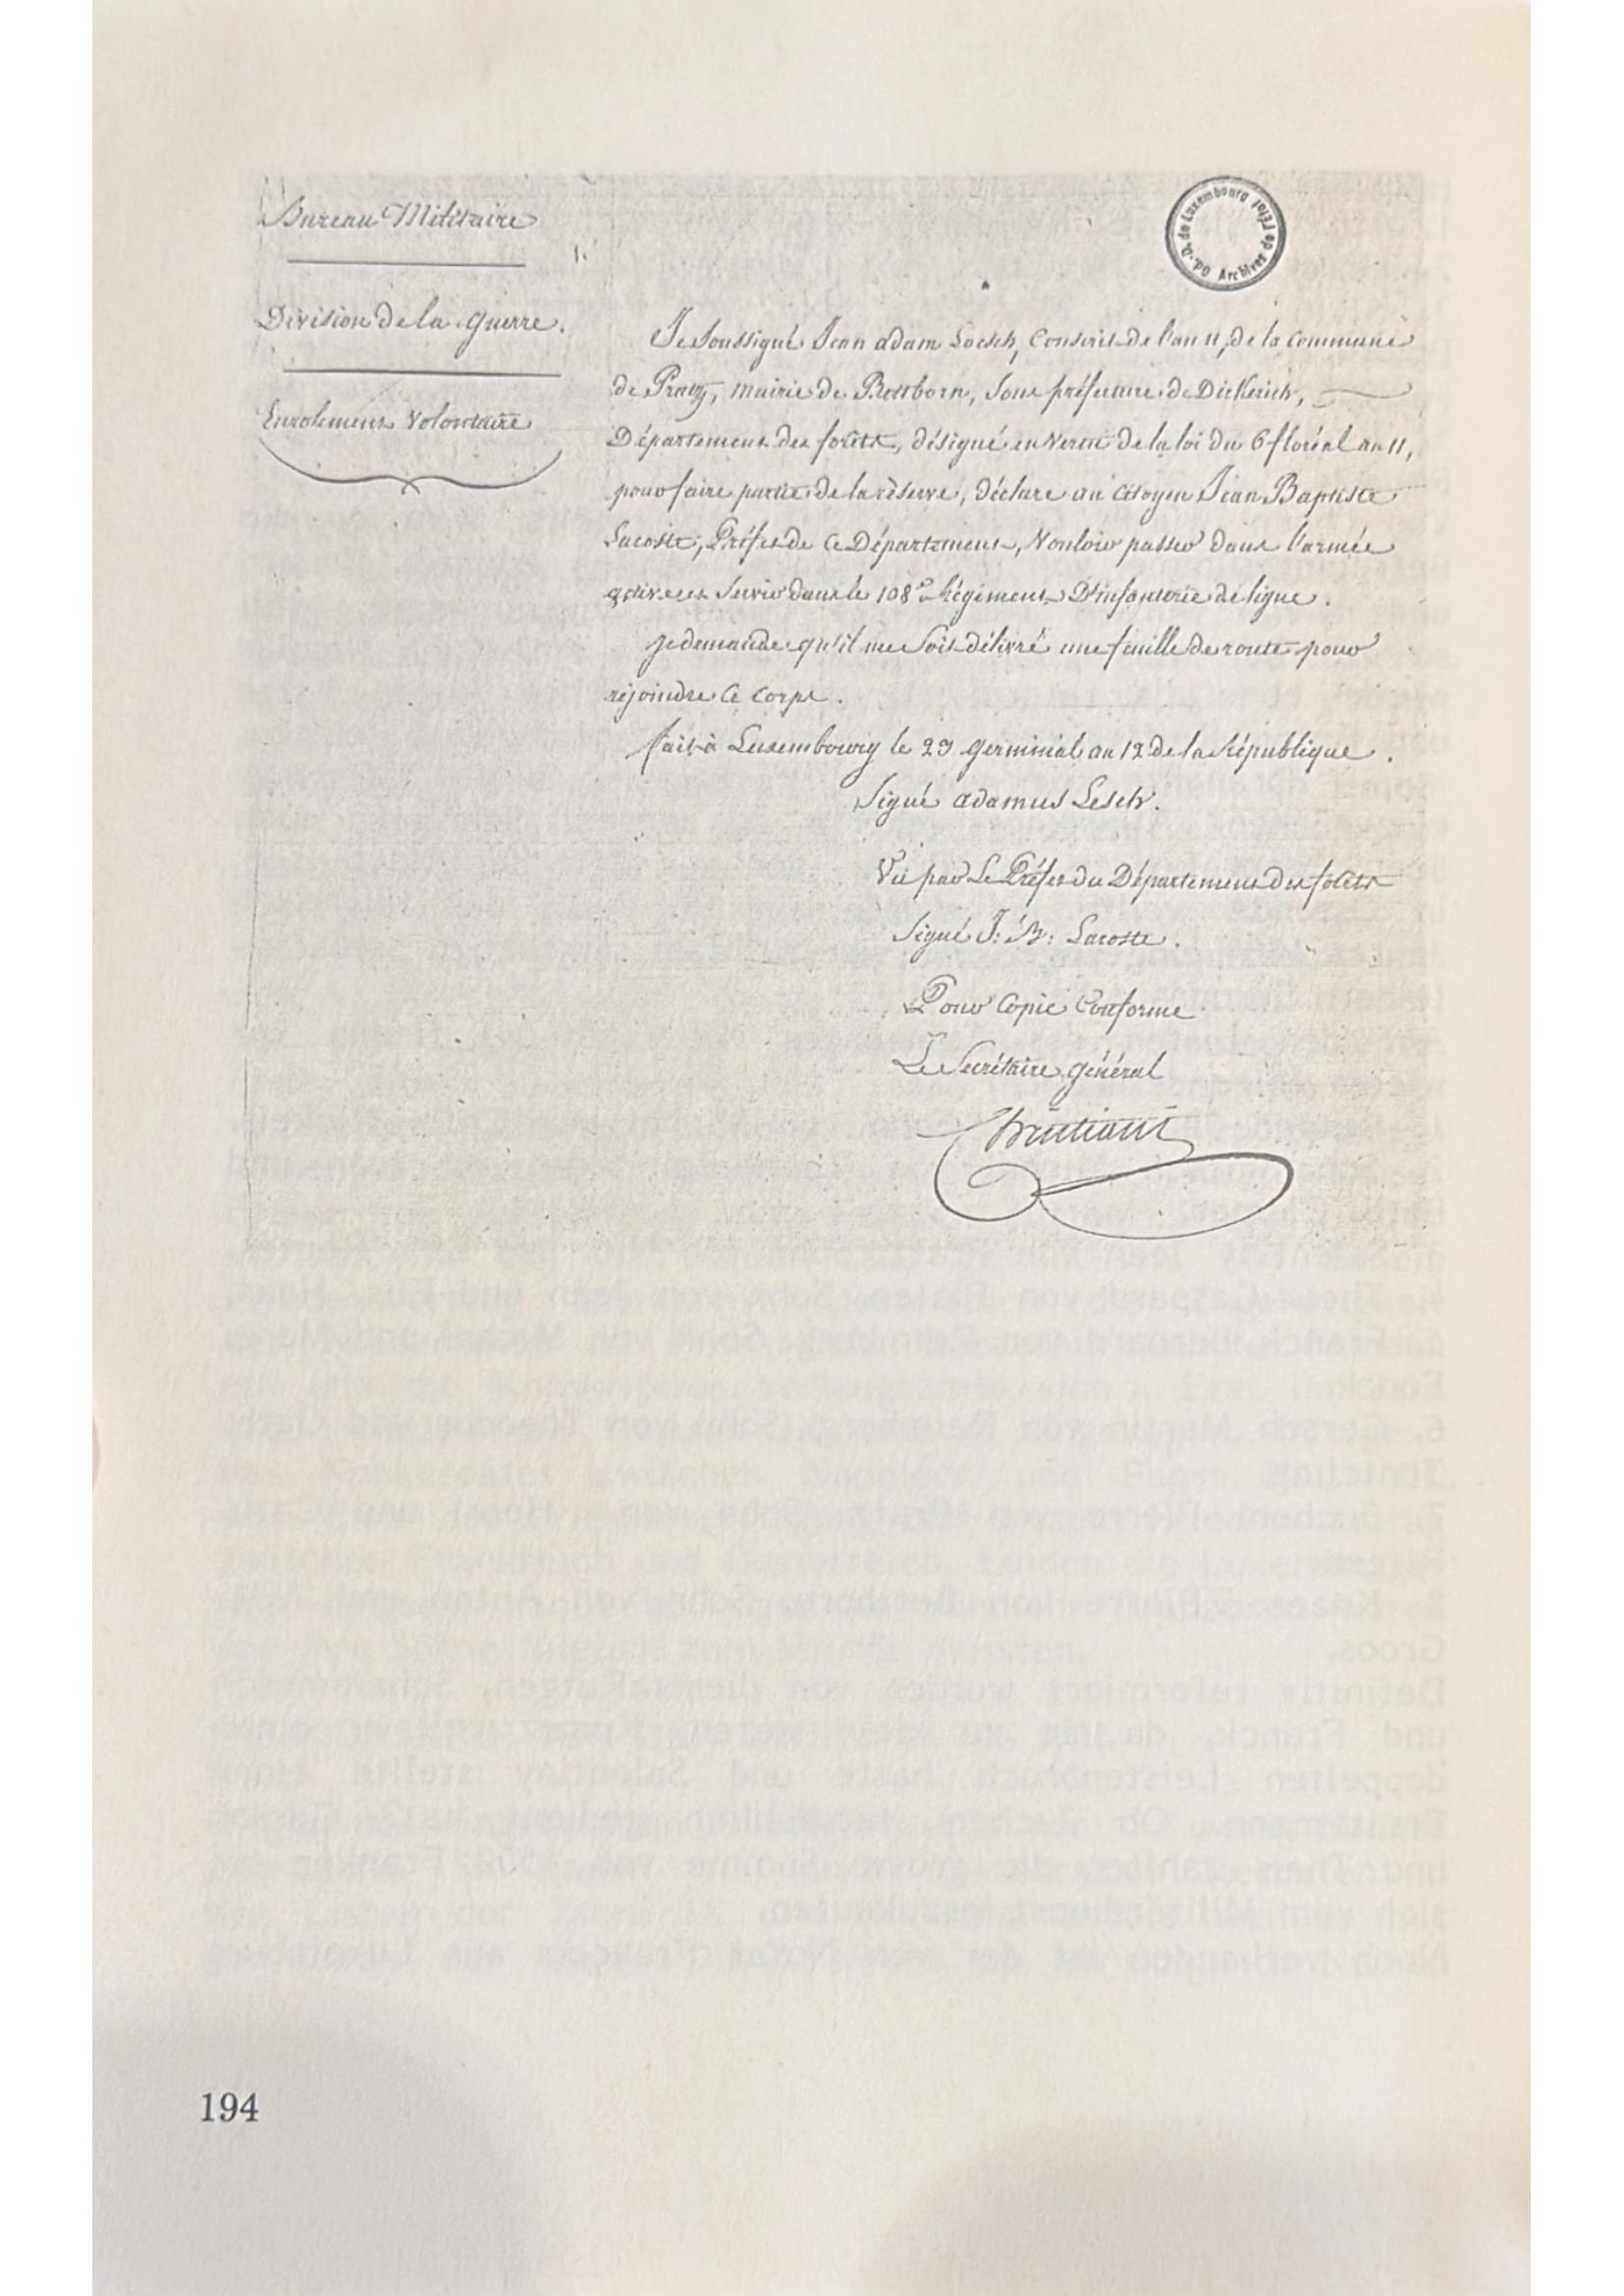 Bureau Militaire
Division de la Guerre.
Enrolement Volontaire
Gd.-D. de Luxembourg Archives de l'Etat
Je Soussigné Jean adam Loesch, Conscrit de l'an 11, de la Commune
de Pratz, mairie de Bettborn, Sous préfecture de Dickirich,
Département des forêts, désigné en Vertu de la loi du 6 floréal an 11,
pour faire partie de la réserve, déclare au Citoyen Jean Baptiste
Lacoste, Préfet de Ce Département, Vouloir passer dans l'armée
active et Servir dans le 108e Régiment D'infanterie de ligne.
je demande qu'il me Soit délivré une feuille de route pour
rejoindre Ce Corps.
fait à Luxembourg le 29 germinal an 12 de la République.
Signé adamus Lesch.
Vu par Le Préfet du Département des forêts
Signé J: B: Lacoste.
Pour Copie Conforme
Le Secrétaire général
194